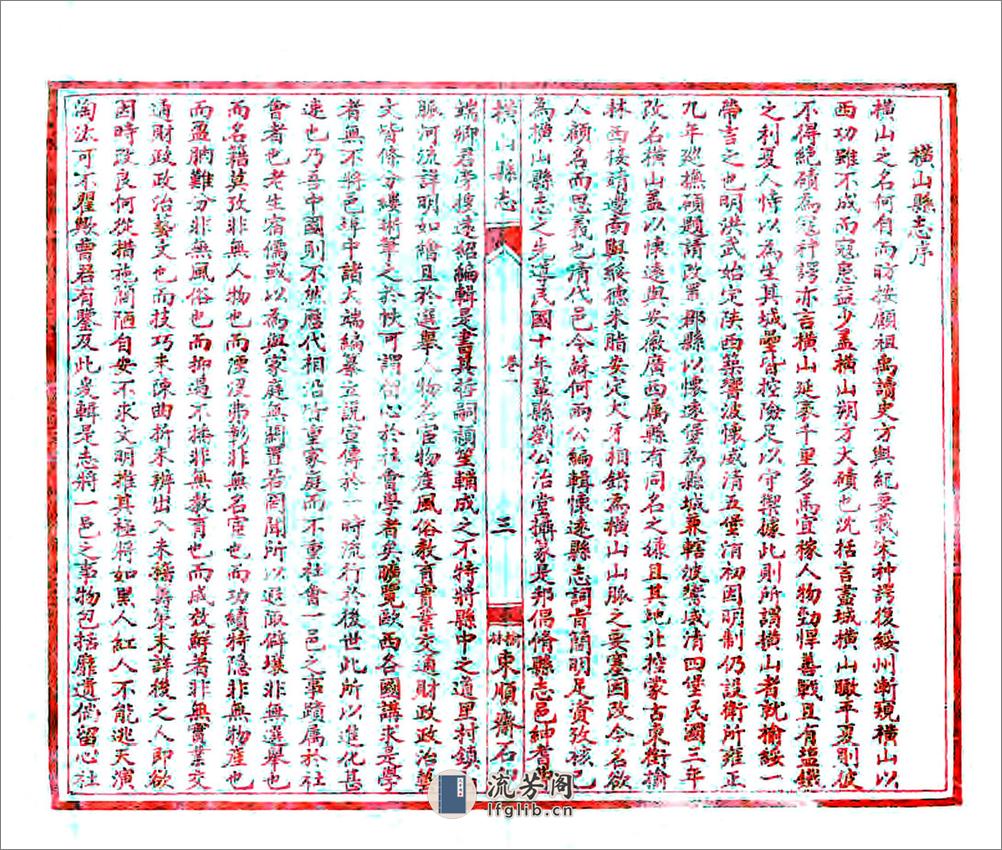 橫山縣志序
橫山之名何自而昉按顧祖禹讀史方輿紀要載宋种諤復綏州漸窺橫山以
西功雖不成而寇患益少蓋橫山朔方大磧也沈括言盡城橫山瞰平夏則彼
不得絕磧為寇种諤亦言橫山延袤千里多馬宜稼人物勁悍善戰且有鹽鐵
之利夏人恃以為生其城壘皆控險足以守禦據此則所謂橫山者就榆綏一
帶言之也明洪武始定陝西築響波懷威清五堡清初因明制仍設衛所雍正
九年巡撫碩題請改置郡縣以懷遠堡為縣城兼轄波響威清四堡民國三年
改名橫山蓋以懷遠與安徽廣西屬縣有同名之嫌且其地北控蒙古東銜榆
林西接靖邊南與綏德米脂安定犬牙相錯為橫山山脈之要塞因改今名欲
人顧名而思義也清代邑令蘇何兩公編輯懷遠縣志詞旨簡明足資攷核已
為橫山縣志之先導民國十年盩縣劉公治堂攝篆是邦倡脩縣志邑紳耆曹
橫山縣志
卷一
三
榆林東順齋石印
端卿君旁搜遠紹編輯是書其哲嗣頴笙輯成之不特將縣中之道里村鎮山
脈河流詳明如繪且於選舉人物名宦物產風俗教育實業交通財政政治藝
文皆條分縷晰筆之於帙可謂留心於社會學者矣曠覽歐西各國講求是學
者無不將邑埠中諸大端編纂立說宣傳於一時流行於後世此所以進化甚
速也乃吾中國則不然歷代相沿皆皇家庭而不重社會一邑之事蹟屬於社
會者也老生宿儒或以為與家庭無關置若罔聞所以遐陬僻壤非無選舉也
而名籍莫攷非無人物也而湮沒弗彰非無名宦也而功績特隱非無物產也
而盈朒難分非無風俗也而抑遏不揚非無教育也而成效鮮著非無實業交
通財政政治藝文也而技巧未陳曲折未辨出入未稽籌策未詳後之人即欲
因時改良何從措施簡陋自安不求文明推其極將如黑人紅人不能逃天演
淘汰可不瞿歟曹君有鑒及此爰輯是志將一邑之事物包括靡遺倘留心社
流芳阁
lfglib.cn